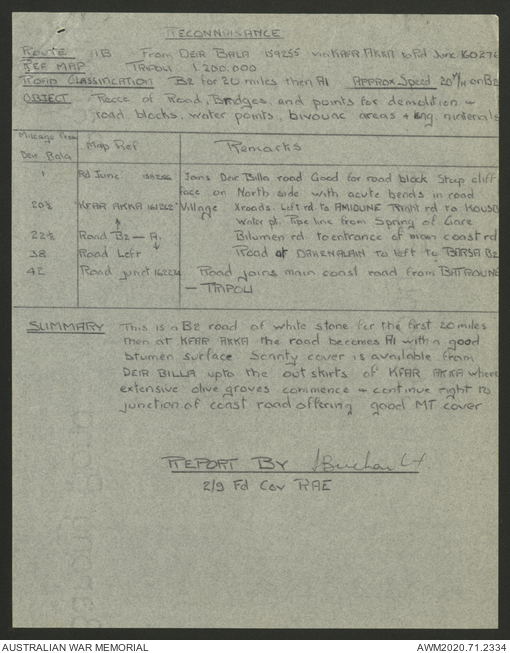 RECONNAISANCE
ROUTE 11B From DEIR BALA 159255 via KAFR AKKA to Rd Junc 160276
REF MAP TRIPOLI 1.200.000
ROAD CLASSIFICATION B2 for 20 miles then A1 APPROX SPEED 20 M/H on B2
OBJECT Recce of Road, Bridges, and points for demolition &
road blocks, water points, bivouac areas & eng. materials
Mileage From Deir Bala Map Ref Remarks
1 Rd Junc Joins Deir Billa road Good for road block Steep cliff
face on North side with acute bends in road
20½ KFAR AKKA Village Xroads. Left rd to AMIOUNE Right rd to KOUSBA
Water pt. Pipe line from Spring of Gare
22½ Road B2 — A1 Bitumen rd to entrance of main coast rd
38 Road Left Road at DAHENALAIN to left to BARSA B2
42 Road junct Road joins main coast road from BATROUNE
— TRIPOLI
SUMMARY This is a B2 road of white stone for the first 20 miles
then at KFAR AKKA the road becomes A1 with a good
bitumen surface Scanty cover is available from
DEIR BILLA upto the outskirts of KFAR AKKA where
extensive olive groves commence & continue right to
junction of coast road offering good MT cover
REPORT BY Lt
2/9 Fd Coy RAE
AUSTRALIAN WAR MEMORIAL AWM2020.71.2334